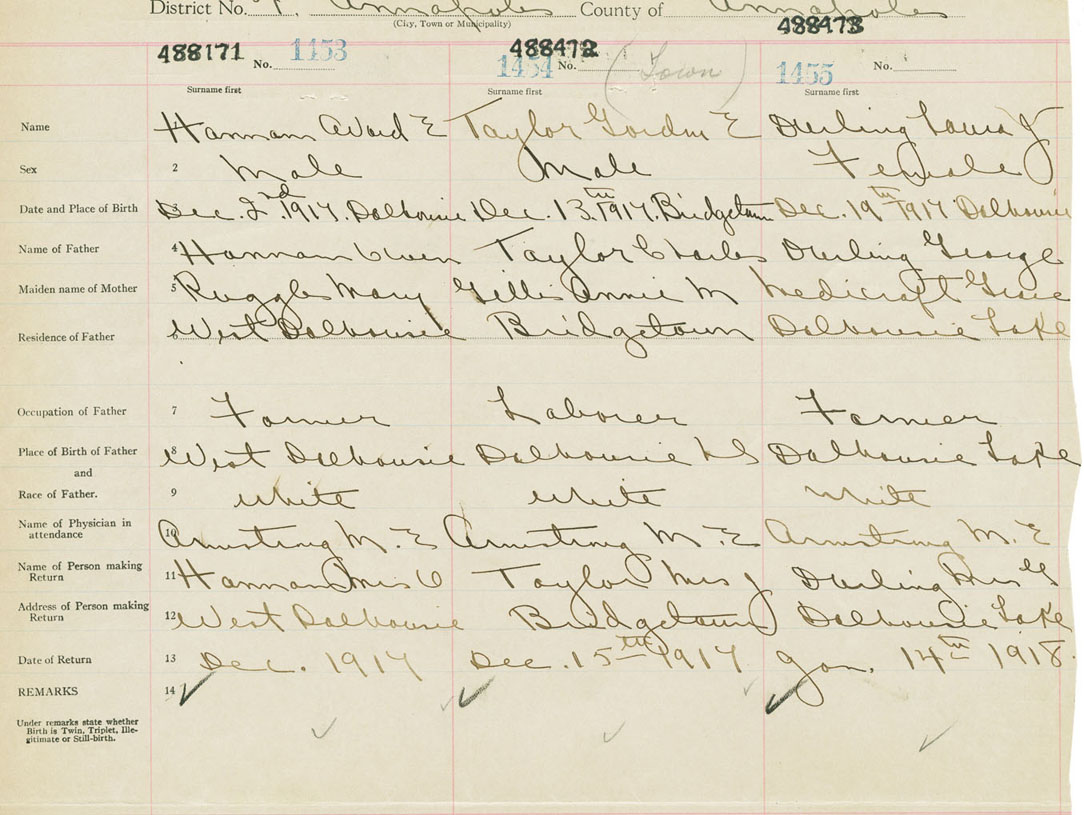 District No. Annapolis County of Annapolis
(City, Town or Municipality)
488171 No. 1453 488472 1454 No. (Town) 488473 1455 No.
Surname first Surname first Surname first
Name 1 Hannam Avard E Taylor Gordon E Durling Laura J
Sex 2 Male Male Female
Date and Place of Birth 3 Dec. 2nd 1917. Dalhousie Dec. 13th 1917. Bridgetown Dec. 19th 1917 Dalhousie
Name of Father 4 Hannam Owen Taylor Charles Durling George
Maiden name of Mother 5 Ruggles Mary Gillis Annie M Medicraft Grace
Residence of Father 6 West Dalhousie Bridgetown Dalhousie Lake
Occupation of Father 7 Farmer Laborer Farmer
Place of Birth of Father 8 West Dalhousie Dalhousie NS Dalhousie Lake
and
Race of Father. 9 White White White
Name of Physician in
attendance 10 Armstrong M. E Armstrong M. E Armstrong M. E
Name of Person making
Return 11 Hannam Mrs O Taylor Mrs J Durling Mrs
Address of Person making
Return 12 West Dalhousie Bridgetown Dalhousie Lake
Date of Return 13 Dec. 1917 Dec. 15th 1917 Jan. 14th 1918.
REMARKS 14
Under remarks state whether
Birth is Twin, Triplet, Ille-
gitimate or Still-birth.